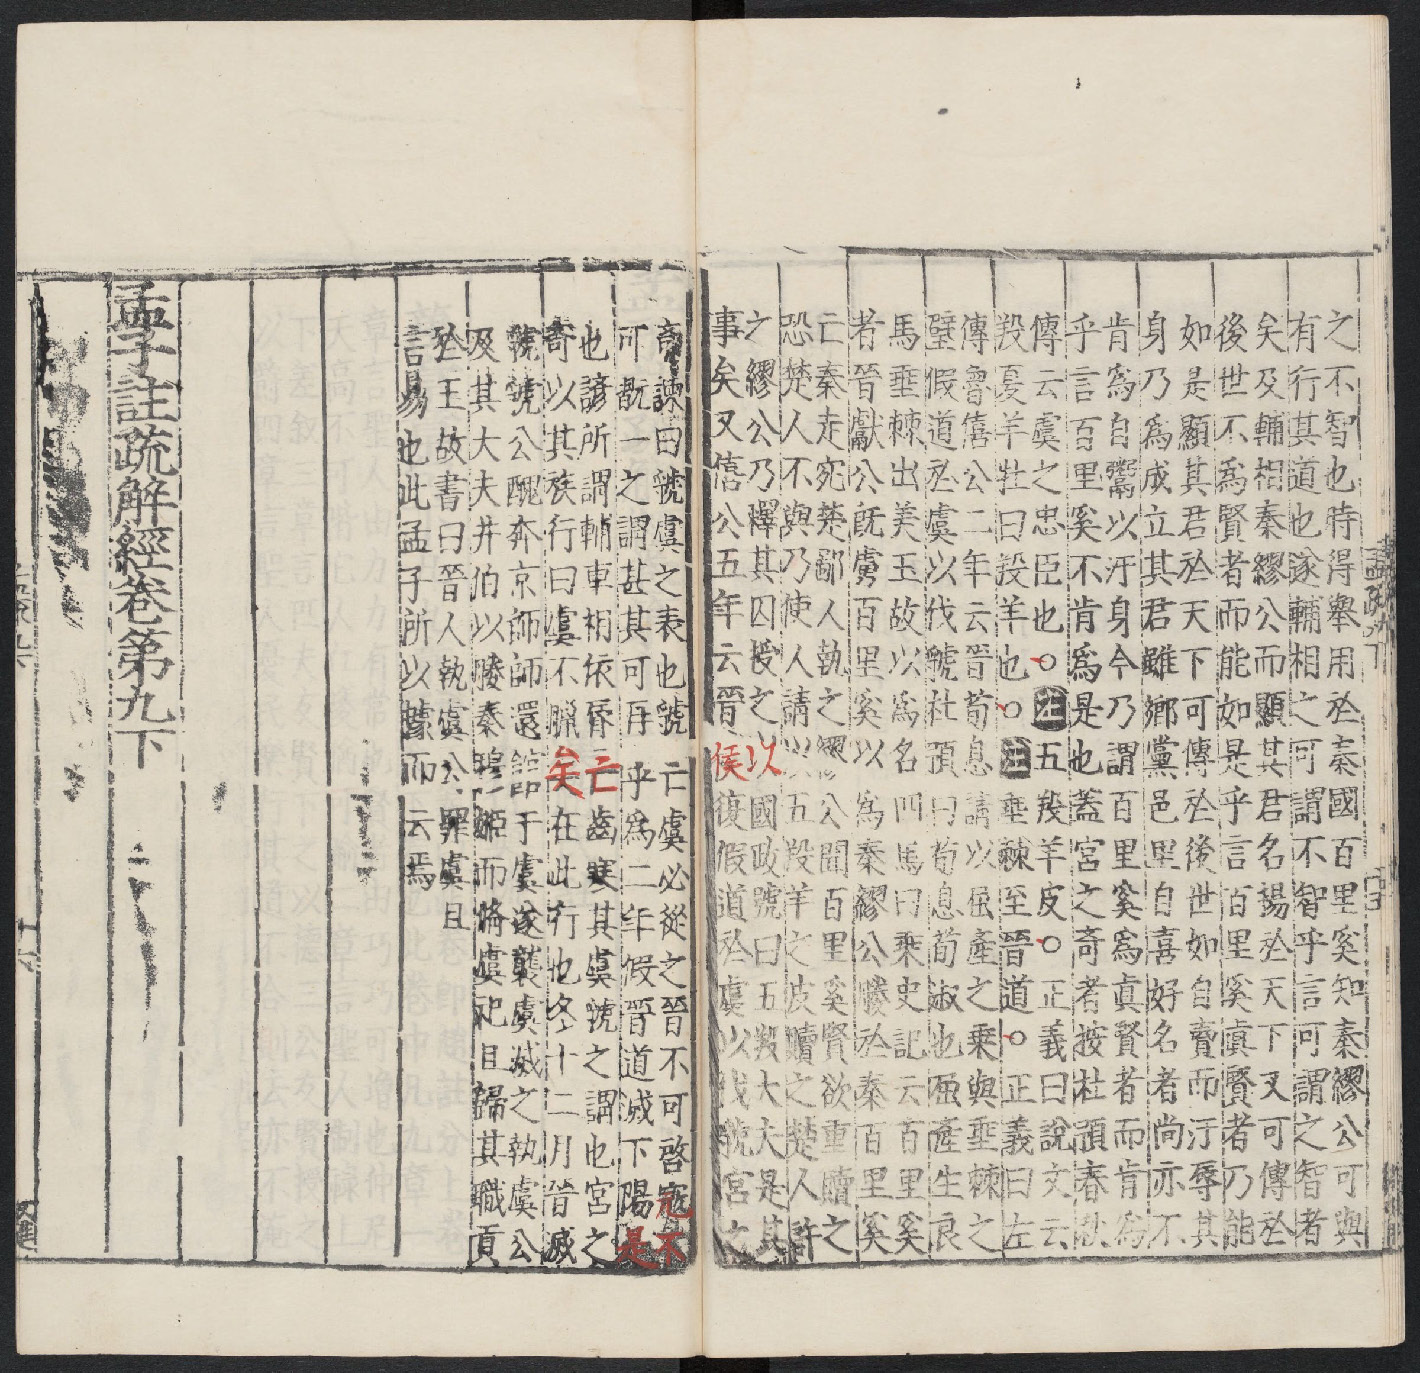 之不智也時得舉用於秦國百里奚知秦繆公可與
有行其道也遂輔相之可謂不智乎言可謂之智者
矣及輔相秦繆公而顯其君名揚於天下又可傳於
後世不爲賢者而能如是乎言百里奚眞賢者乃能
如是顯其君於天下可傳於後世如自賣而汙辱其
身乃爲成立其君雖鄉黨邑里自喜好名者尚亦不
肯爲自鬻以汙身今乃謂百里奚爲眞賢者而肯爲
乎言百里奚不肯爲是也蓋宮之奇者按杜預春秋
傳云虞之忠臣也○注五羖羊皮○正義曰說文云
羖夏羊牡曰羖羊也○注垂棘至晉道○正義曰左
傳魯僖公二年云晉荀息請以屈產之乘與垂棘之
璧假道於虞以伐虢杜預曰荀息荀叔也屈產生良
馬垂棘出美玉故以爲名四馬曰乘史記云百里奚
者晉獻公旣虜百里奚以爲秦繆公媵於秦百里奚
亡秦走宛楚鄙人執之繆公聞百里奚賢欲重贖之
恐楚人不與乃使人請以五羖羊之皮贖之楚人許
之繆公乃釋其囚授之以國政號曰五羖大夫是其
事矣又僖公五年云晉侯復假道於虞以伐虢宮之
奇諫曰虢虞之表也虢亡虞必從之晉不可啓寇不
可翫一之謂甚其可再乎爲二年假晉道滅下陽是
也諺所謂輔車相依脣亡齒寒其虞虢之謂也宮之
奇以其族行曰虞不臘矣在此行也冬十二月晉滅
虢虢公醜奔京師師還館于虞遂襲虞滅之執虞公
及其大夫井伯以媵秦穆姬而脩虞祀且歸其職貢
於王故書曰晉人執虞公罪虞且
言易也此孟子所以據而云焉
孟子註疏解經卷第九下